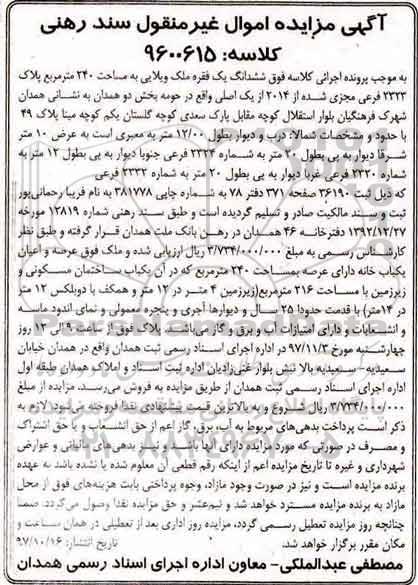 آگهی مزایده اموال غیرمنقول سند رهنی
کلاسه: ۹۶۰۰۶۱۵
به موجب پرونده اجرائی کلاسه فوق ششدانگ یک فقره ملک ویلایی به مساحت ۲۴۰ مترمربع پلاک
۲۳۳۳ فرعی مجزی شده از ۲۰۱۴ از یک اصلی واقع در حومه بخش دو همدان به نشانی همدان
شهرک فرهنگیان بلوار استقلال کوچه مقابل پارک سعدی کوچه گلستان یکم کوچه مینا پلاک ۴۹
با حدود و مشخصات شمالا: درب و دیوار بطول ۱۲/۰۰ متر به معبری است به عرض ۱۰ متر
شرقا دیوار به پی بطول ۲۰ متر به شماره ۲۳۳۴ فرعی جنوبا دیوار به پی بطول ۱۲ متر به
شماره ۲۳۳۰ فرعی غربا دیوار به پی بطول ۲۰ متر به شماره ۲۳۳۲ فرعی
که ذیل ثبت ۳۶۱۹۰ صفحه ۳۷۱ دفتر ۷۸ به شماره چاپی ۳۸۱۷۷۸ به نام فریبا رحمانی‌پور
ثبت و سند مالکیت صادر و تسلیم گردیده است و طبق سند رهنی شماره ۱۲۸۱۹ مورخه
۱۳۹۲/۱۲/۲۷ دفترخانه ۴۶ همدان در رهن بانک ملت همدان قرار گرفته و طبق نظر
کارشناس رسمی به مبلغ ۳/۷۳۴/۰۰۰/۰۰۰ ریال ارزیابی شده و ملک فوق عرصه و اعیان
یکباب خانه دارای عرصه بمساحت ۲۴۰ مترمربع که در آن یکباب ساختمان مسکونی و
زیرزمین با مساحت ۲۱۶ مترمربع(زیرزمین ۴ متر در ۱۲ متر و همکف با دوبلکس ۱۲ متر
در ۱۴ متر) با قدمت حدودا ۲۵ سال و دیوارها آجری و پنجره معمولی و نمای اندود سه
و انشعابات و دارای امتیازات آب و برق و گاز می‌باشند. پلاک فوق از ساعت ۹ الی ۱۲ روز
چهارشنبه مورخ ۹۷/۱۱/۳ در اداره اجرای اسناد رسمی ثبت همدان واقع در همدان خیابان
سعیدیه – سعیدیه بالا نبش بلوار غنی‌زادیان اداره ثبت اسناد و املاک همدان طبقه اول
اداره اجرای اسناد رسمی ثبت همدان از طریق مزایده به فروش می‌رسد. مزایده از مبلغ
۳/۷۳۴/۰۰۰/۰۰۰ ریال شروع و به بالاترین قیمت پیشنهادی نقدا فروخته می‌شود. لازم به
ذکر است پرداخت بدهی‌های مربوط به آب، برق، گاز اعم از حق انشعاب و یا حق اشتراک
و مصرف در صورتی که مورد مزایده دارای آنها باشد و نیز بدهی‌های مالیاتی و عوارض
شهرداری و غیره تا تاریخ مزایده اعم از اینکه رقم قطعی آن معلوم شده یا نشده باشد به عهده
برنده مزایده است و نیز در صورت وجود مازاد، وجوه پرداختی بابت هزینه‌های فوق از محل
مازاد به برنده مزایده مسترد خواهد شد و نیم‌عشر و حق مزایده نقدا وصول می‌گردد. ضمنا
چنانچه روز مزایده تعطیل رسمی گردد، مزایده روز اداری بعد از تعطیلی در همان ساعت و
مکان مقرر برگزار خواهد شد. تاریخ انتشار: ۹۷/۱۰/۱۶
مصطفی عبدالملکی– معاون اداره اجرای اسناد رسمی همدان